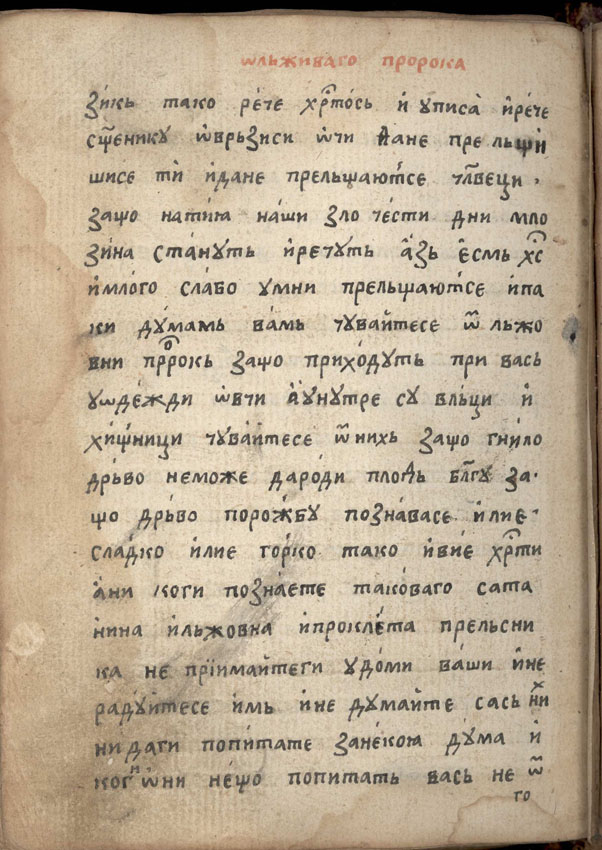 ѡльживаго пророка
зикь тако рече хрⷭ҇тось и уписа и рече
сщ҃енику ѿврьзиси ѡчи да не прельщи
шисе ти и да не прельщаютсе чл҃веци ·
защо на тия наши злочести дни мло
зина стануть и речуть азь есмь хс҃
и млого слабо умни прельщаютсе и па
ки думамь вамь чувайтесе ѿ льжо
вни пррⷪ҇окь защо приходуть при вась
у ѡдежди ѡвчи а унутре су вльци и
хищници чувайтесе ѿ нихь защо гнило
дрьво не може да роди плодь бл҃гу за·
що дрьво по рожбу познавасе или е·
сладко или е горко тако и вие хрⷭ҇ти
ани коги познаете таковаго сата
нина и льжовна и проклета прельсни
ка не приимайте ги у доми ваши и не
радуйтесе имь и не думайте сась ниⷯ
ни да ги попитате за некою дума и
коги ѡни нещо попитать вась не ѿ
го